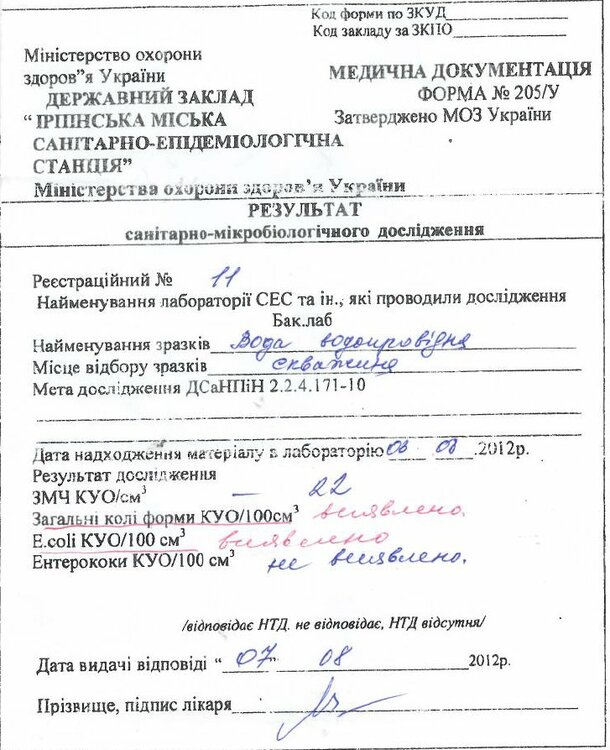 Код форми по ЗКУД
Код закладу за ЗКПО
Міністерство охорони
здоров"я України
МЕДИЧНА ДОКУМЕНТАЦІЯ
ДЕРЖАВНИЙ ЗАКЛАД
ФОРМА № 205/У
" ІРПІНСЬКА МІСЬКА
Затверджено МОЗ України
САНІТАРНО-ЕПІДЕМІОЛОГІЧНА
СТАНЦІЯ"
Міністерства охорони здоров'я України
РЕЗУЛЬТАТ
санітарно-мікробіологічного дослідження
Реєстраційний № 11
Найменування лабораторії СЕС та ін., які проводили дослідження
Бак.лаб
Найменування зразків Вода водопровідна
Місце відбору зразків скважина
Мета дослідження ДСаНПіН 2.2.4.171-10
Дата надходження матеріалу в лабораторію 06 08 .2012р.
Результат дослідження
ЗМЧ КУО/см³ — 22
Загальні колі форми КУО/100см³ виявлено.
E.coli КУО/100 см³ виявлено
Ентерококи КУО/100 см³ не виявлено.
/відповідає НТД. не відповідає, НТД відсутня/
Дата видачі відповіді " 07" 08 2012р.
Прізвище, підпис лікаря